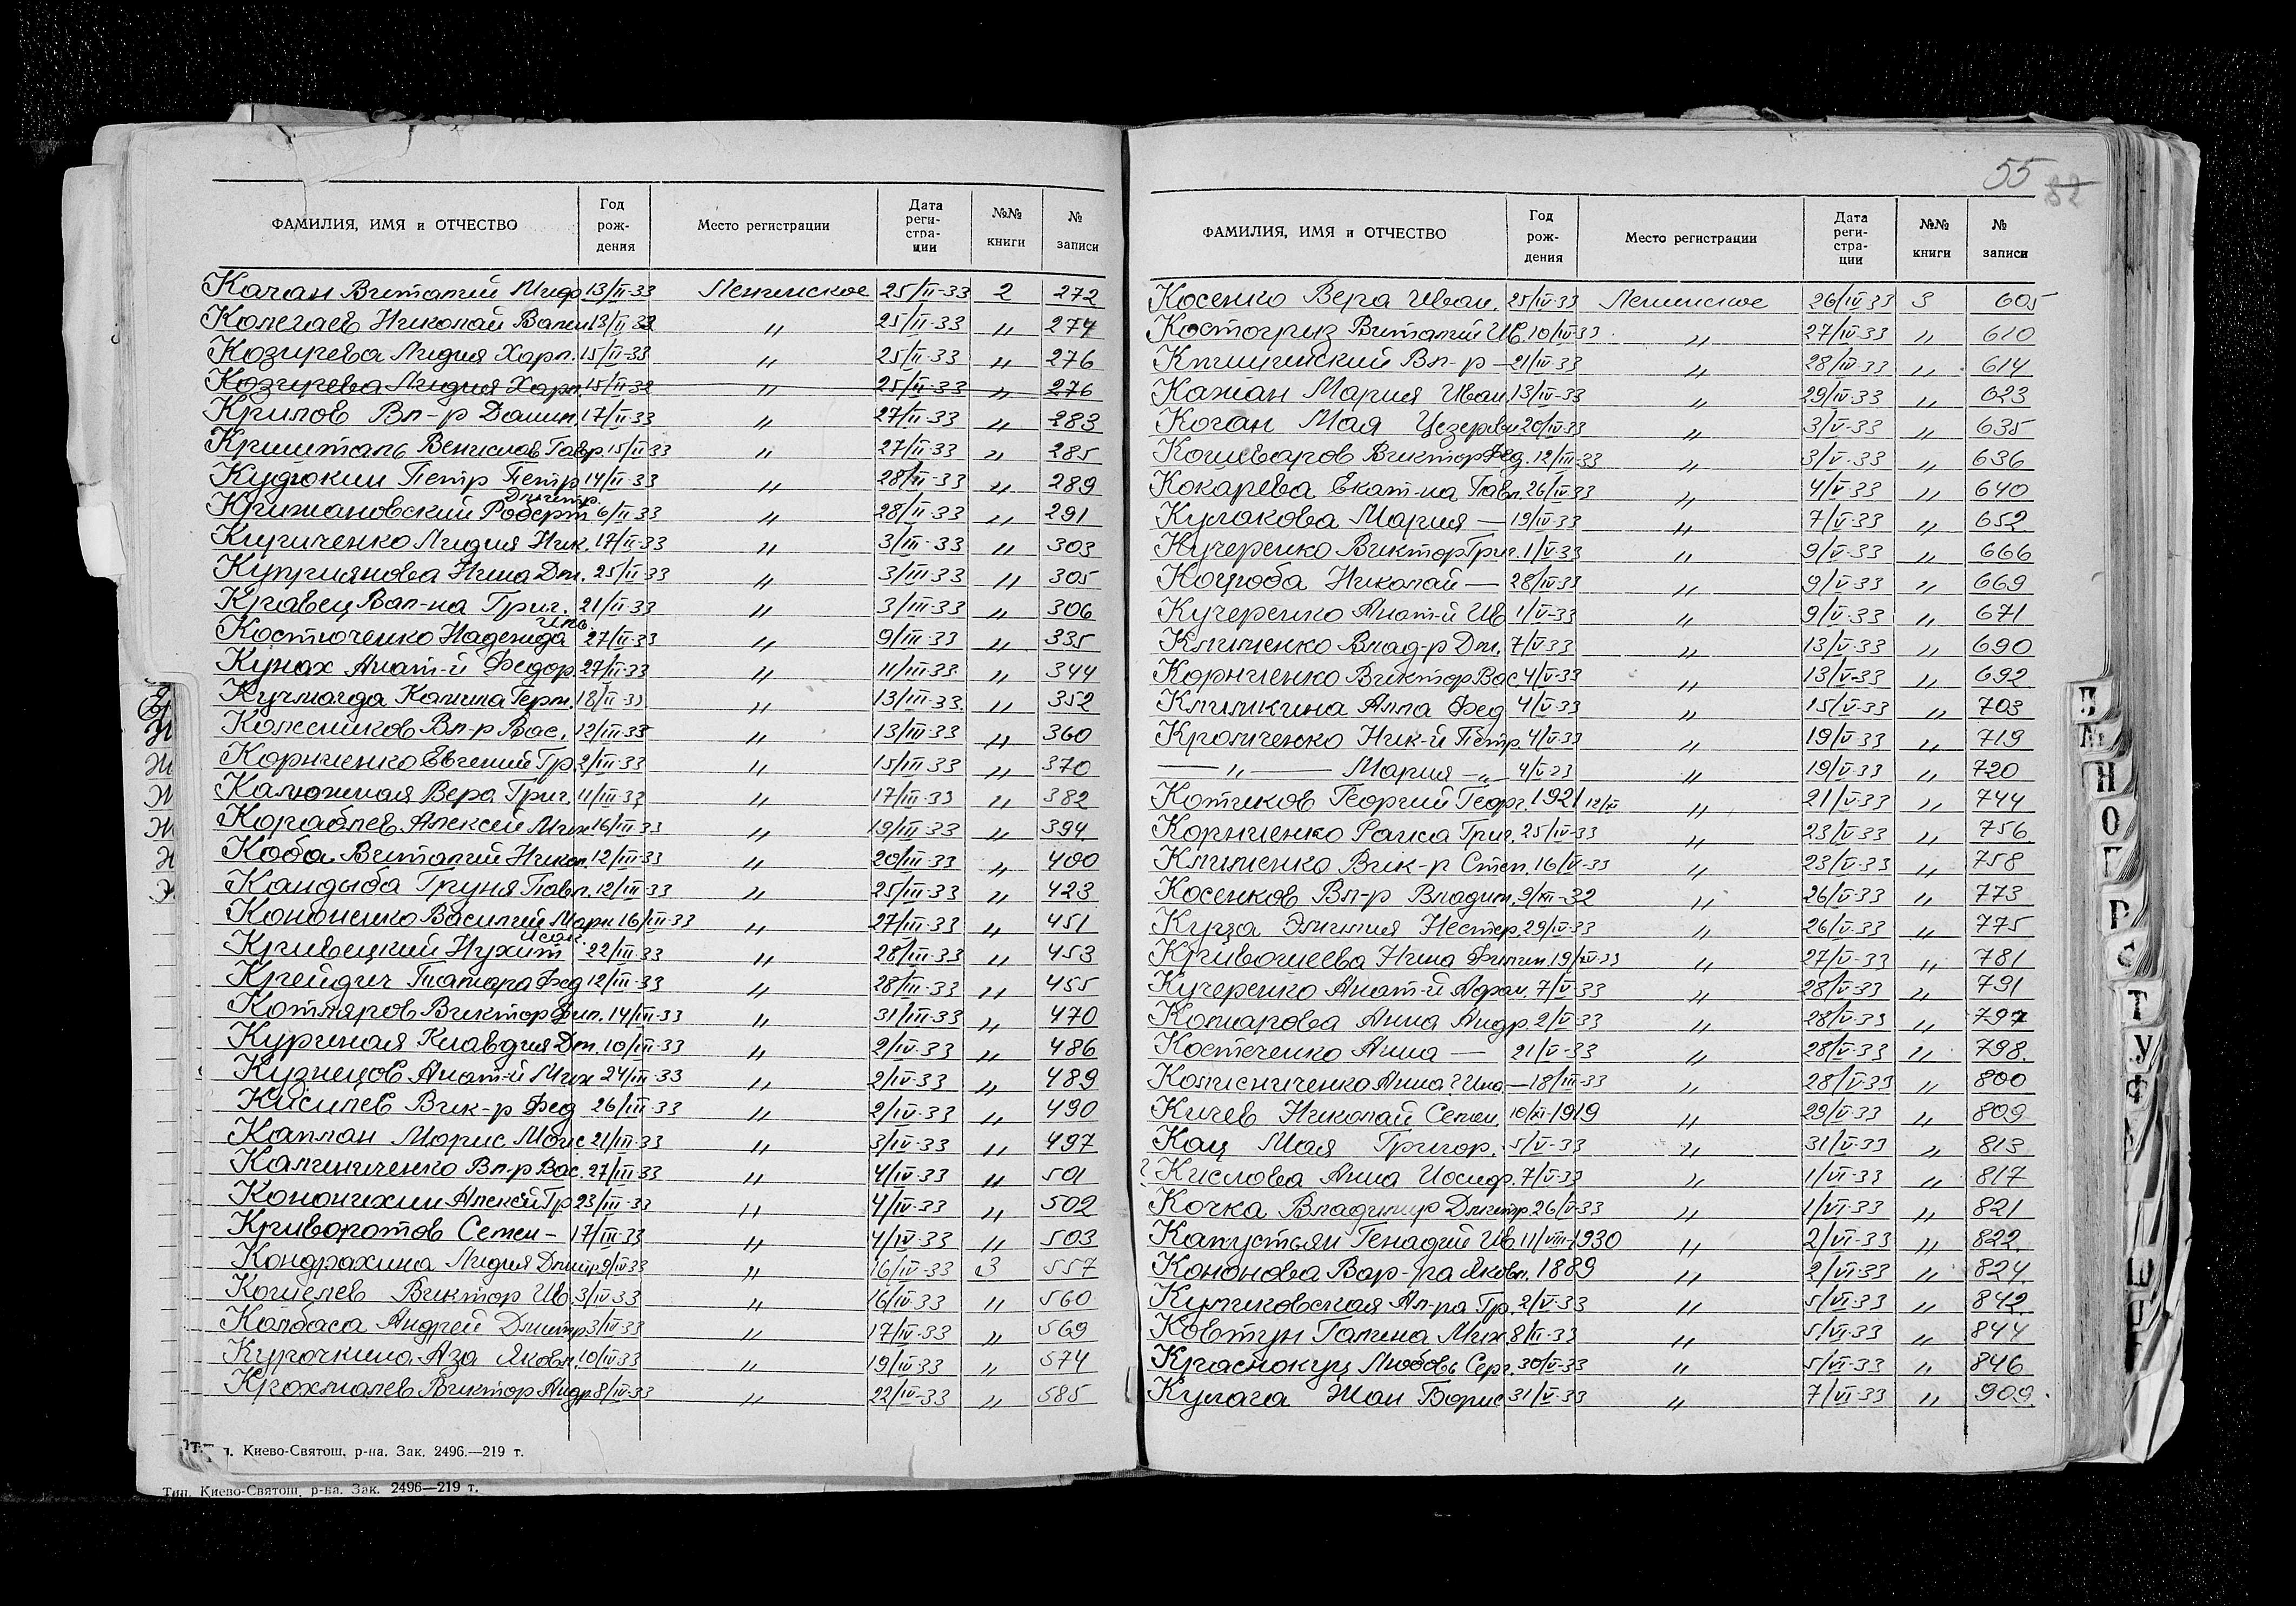 55
82
ФАМИЛИЯ, ИМЯ и ОТЧЕСТВО Год рождения Место регистрации Дата регистрации №№ книги № записи
Качан Виталий Миф 13/II-33 Ленинское 25/II-33 2 272
Колегаев Николай Вален 13/II-33 " 25/II-33 " 274
Козирева Лидия Харл. 15/II-33 " 25/II-33 " 276
Козирева Лидия Харл 15/II-32 " 25/II-33 " 276
Крилов Вл-р Даним. 17/II-33 " 27/II-33 " 283
Кришталь Венислав Гавр. 15/II-33 " 27/II-33 " 285
Кудюкин Петр Петр 14/II-33 " 28/II-33 " 289
Крижановский Роберт Дмитр. 6/II-33 " 28/II-33 " 291
Кириченко Лидия Ник. 17/II-33 " 3/III-33 " 303
Куприянова Нина Дм. 25/II-33 " 3/III-33 " 305
Кравец Вал-на Григ. 21/II-33 " 3/III-33 " 306
Костюченко Надежда 27/II-33 " 9/III-33 " 335
Кунах Анат-й Федор 27/II-33 " 11/III-33 " 344
Галина Герм. 18/II-33 " 13/III-33 " 352
Колесников Вл-р Вас. 12/III-33 " 13/III-33 " 360
Корниенко Евгений Гр 2/III-33 " 15/III-33 " 370
Калюжная Вера Григ. 11/III-33 " 17/III-33 " 382
Кораблев Алексей Мих 16/III-33 " 19/III-33 " 394
Коба Виталий Никол. 12/III-33 " 20/III-33 " 400
Кандыба Груня Павл. 12/III-33 " 25/III-33 " 423
Кононенко Василий Марк 16/III-33 " 27/III-33 " 451
Кривецкий Нухим Исак. 22/III-33 " 28/III-33 " 453
Крейдич Тамара Фед 12/III-33 " 28/III-33 " 455
Котляров Виктор Фил. 14/III-33 " 31/III-33 " 470
Куриная Клавдия Дм. 10/III-33 " 2/IV-33 " 486
Кузнецов Анат-й Мих 24/III-33 " 2/IV-33 " 489
Кисилев Вик-р Фед 26/III-33 " 2/IV-33 " 490
Каплан Морис Моис 21/III-33 " 3/IV-33 " 497
Калиниченко Вл-р Вас. 27/III-33 " 4/IV-33 " 501
Кононихин Алексей Гр 23/III-33 " 4/IV-33 " 502
Криворотов Семен - 17/III-33 " 4/IV-33 " 503
Кондрахина Лидия Дмитр 9/IV-33 " 16/IV-33 3 557
Кошелев Виктор Ив. 3/IV-33 " 16/IV-33 " 560
Колбаса Андрей Дмитр 3/IV-33 " 17/IV-33 " 569
Курочкина Аза Яковл. 10/IV-33 " 19/IV-33 " 574
Крохмалев Виктор Андр. 8/IV-33 " 22/IV-33 " 585
Киево-Святош. р-на. Зак. 2496.—219 т.
Тип. Киево-Святош. р-на. Зак. 2496—219 т.
ФАМИЛИЯ, ИМЯ и ОТЧЕСТВО Год рождения Место регистрации Дата регистрации №№ книги № записи
Косенко Вера Иван. 25/IV-33 Ленинское 26/IV-33 3 605
Костогриз Виталий Ив. 10/IV-33 " 27/IV-33 " 610
Вл-р — 21/IV-33 " 28/IV-33 " 614
Кажан Мария Иван 13/IV-33 " 29/IV-33 " 623
Коган Мая Цезаревн 20/IV-33 " 3/V-33 " 635
Кошеваров Виктор Фед. 12/III-33 " 3/V-33 " 636
Кокарева Екат-на Павл. 26/IV-33 " 4/V-33 " 640
Кулакова Мария — 19/IV-33 " 7/V-33 " 652
Кучеренко Виктор Григ. 1/V-33 " 9/V-33 " 666
Коцюба Николай — 28/IV-33 " 9/V-33 " 669
Кучеренко Анат-й Ив 1/V-33 " 9/V-33 " 671
Клименко Влад-р Дм. 7/V-33 " 13/V-33 " 690
Корниенко Виктор Вас. 4/V-33 " 13/V-33 " 692
Климкина Алла Фед 4/V-33 " 15/V-33 " 703
Кромченко Ник-й Петр 4/V-33 " 19/V-33 " 719
— " — Мария — " — 4/V-33 " 19/V-33 " 720
Котиков Георгий Георг. 1921 12/XI " 21/V-33 " 744
Корниенко Раиса Григ. 25/IV-33 " 23/V-33 " 756
Клименко Вик-р Степ. 16/V-33 " 23/V-33 " 758
Косенков Вл-р Владим. 9/XII-32 " 26/V-33 " 773
Курза Эмилия Нестер. 29/IV-33 " 26/V-33 " 775
Кривошеева Нина Филип. 19/IV-33 " 27/V-33 " 781
Кучеренко Анат-й Афан. 7/V-33 " 28/V-33 " 791
Комарова Анна Андр. 2/V-33 " 28/V-33 " 797
Костеченко Анна — 21/V-33 " 28/V-33 " 798
Колисниченко Анна — 18/III-33 " 28/V-33 " 800
Кичев Николай Семен. 10/XI-1919 " 29/V-33 " 809
Кац Мая Григор. 5/V-33 " 31/V-33 " 813
Кислова Анна Иосиф. 7/V-33 " 1/VI-33 " 817
Кочка Владимир Дмитр. 26/V-33 " 1/VI-33 " 821
Капустьян Генадий Ив. 11/VIII-1930 " 2/VI-33 " 822
Кононова Вар-ра Яковл. 1889 " 2/VI-33 " 824
Куликовская Ал-ра Гр. 2/V-33 " 5/VI-33 " 842
Ковтун Галина Мих 8/II-33 " 5/VI-33 " 844
Краснокуц Любовь Серг. 30/V-33 " 5/VI-33 " 846
Кулага Жан Борис 31/V-33 " 7/VI-33 " 909
Н
О
Г
Р
С
Т
У
Ф
Ш